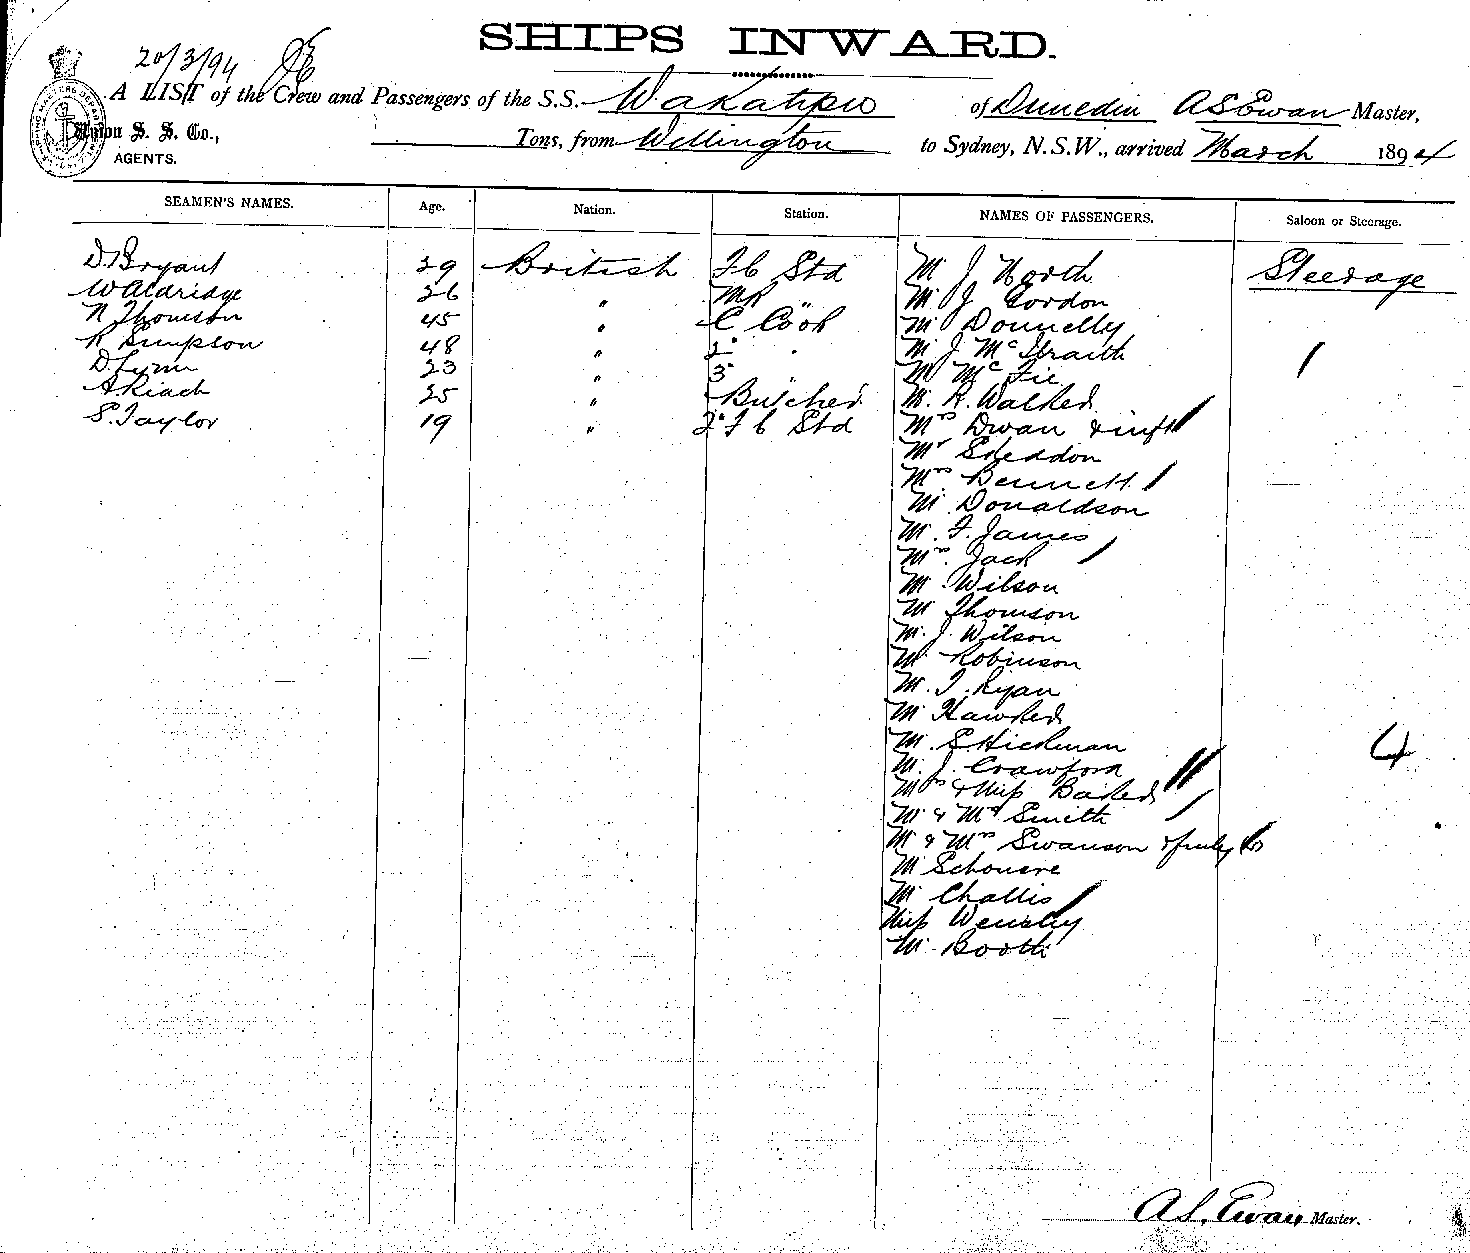 SHIPS INWARD.
20/3/94
A LIST of the Crew and Passengers of the S.S. Wakatipu of Dunedin A S Ewan Master,
Union S. S. Co., Tons, from Wellington to Sydney, N.S.W., arrived March 1894
AGENTS.
SEAMEN'S NAMES. Age. Nation. Station. NAMES OF PASSENGERS. Saloon or Steerage.
D. Bryant 29 British F C Std Mr J North Steerage
W Aldridge 26 " " Mr J Gordon
N Thomson 45 " C Cook Mr Donnelly
R Simpson 48 " 2 " Mr J McIlraith
D. Lynn 23 " 3 Mr McFie
A Riach 25 " Butcher Mr. R. Walker
S. Taylor 19 " 2 F C Std Mrs Dwan & inft
Mr Sheddon
Mrs Bennett
Mr Donaldson
Mr. F. James
Mrs. Jack
Mr Wilson
Mr Thomson
Mr. J. Wilson
Mr Robinson
Mr. T. Ryan
Mr Hawker
Mr. S Hickman
Mr. J. Crawford 4
Mrs & Miss Baker
Mr & Mrs Smith
Mr & Mrs Swanson & family
Mr
Mr Challis
Miss Wensley
Mr Booth
A S. Ewan Master.